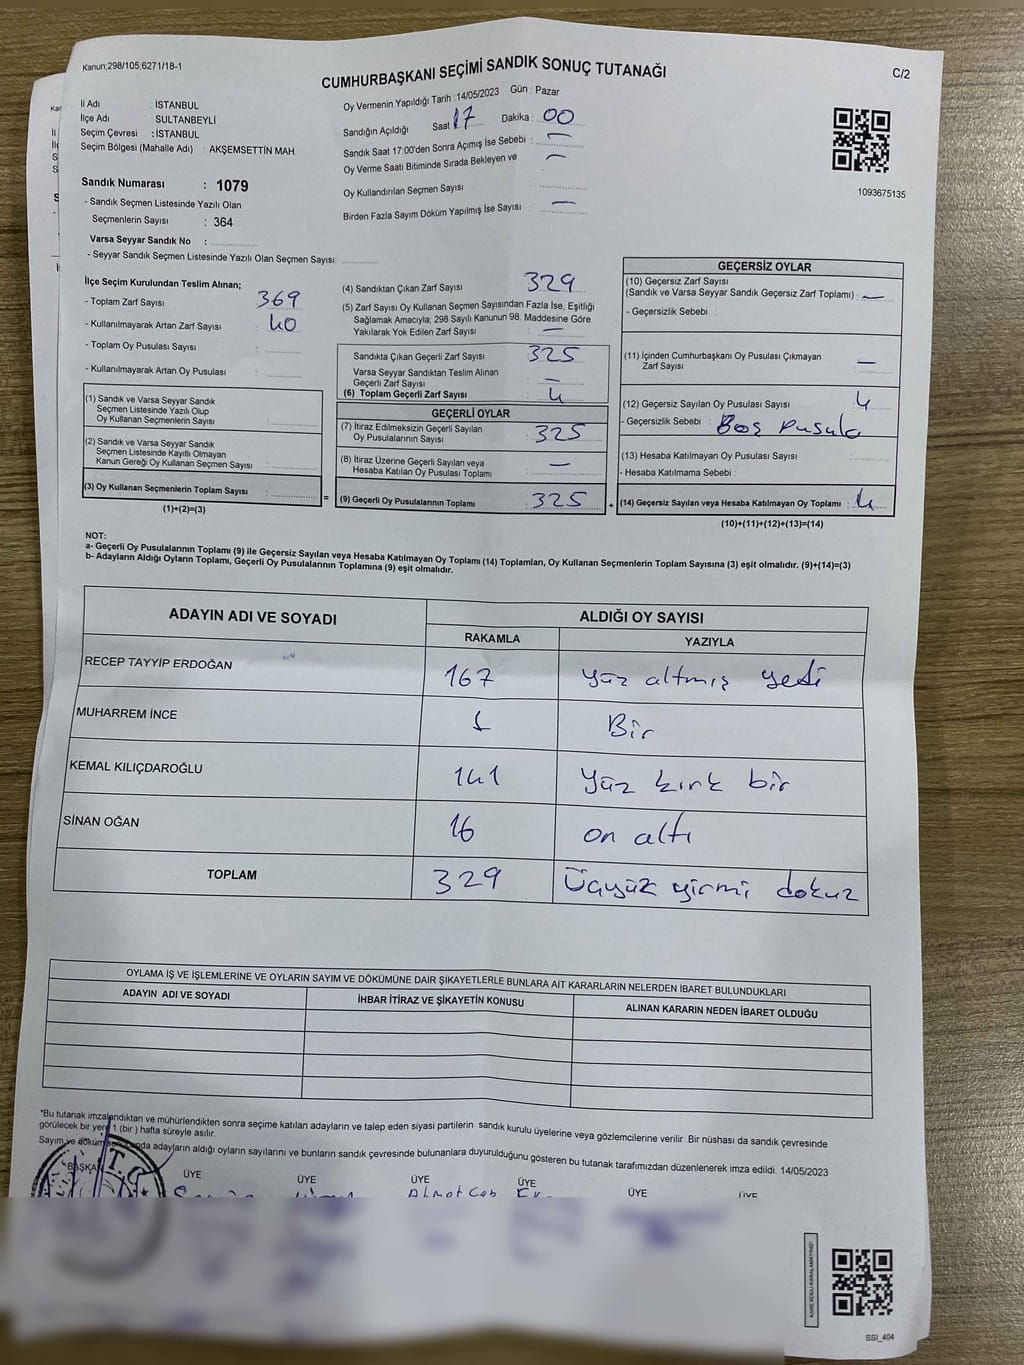 Kanun;298/105,6271/18-1
CUMHURBAŞKANI SEÇİMİ SANDIK SONUÇ TUTANAĞI
C/2
İl Adı : İSTANBUL
İlçe Adı : SULTANBEYLİ
Seçim Çevresi : İSTANBUL
Seçim Bölgesi (Mahalle Adı) : AKŞEMSETTİN MAH.
Oy Vermenin Yapıldığı Tarih :14/05/2023 Gün : Pazar
Sandığın Açıldığı Saat : 17 Dakika : 00
Sandık Saat 17:00'den Sonra Açımış İse Sebebi : —
Oy Verme Saati Bitiminde Sırada Bekleyen ve —
Oy Kullandırılan Seçmen Sayısı :
Birden Fazla Sayım Döküm Yapılmış İse Sayısı : —
1093675135
Sandık Numarası : 1079
- Sandık Seçmen Listesinde Yazılı Olan
Seçmenlerin Sayısı : 364
Varsa Seyyar Sandık No :
- Seyyar Sandık Seçmen Listesinde Yazılı Olan Seçmen Sayısı:
İlçe Seçim Kurulundan Teslim Alınan;
- Toplam Zarf Sayısı : 369
- Kullanılmayarak Artan Zarf Sayısı : 40
- Toplam Oy Pusulası Sayısı :
- Kullanılmayarak Artan Oy Pusulası :
(1) Sandık ve Varsa Seyyar Sandık
Seçmen Listesinde Yazılı Olup
Oy Kullanan Seçmenlerin Sayısı :
(2) Sandık ve Varsa Seyyar Sandık
Seçmen Listesinde Kayıtlı Olmayan
Kanun Gereği Oy Kullanan Seçmen Sayısı :
(3) Oy Kullanan Seçmenlerin Toplam Sayısı :
(1)+(2)=(3)
=
(4) Sandıktan Çıkan Zarf Sayısı : 329
(5) Zarf Sayısı Oy Kullanan Seçmen Sayısından Fazla İse, Eşitliği
Sağlamak Amacıyla; 298 Sayılı Kanunun 98. Maddesine Göre
Yakılarak Yok Edilen Zarf Sayısı : —
Sandıkta Çıkan Geçerli Zarf Sayısı : 325
Varsa Seyyar Sandıktan Teslim Alınan
Geçerli Zarf Sayısı : —
(6) Toplam Geçerli Zarf Sayısı : 4
GEÇERLİ OYLAR
(7) İtiraz Edilmeksizin Geçerli Sayılan
Oy Pusulalarının Sayısı : 325
(8) İtiraz Üzerine Geçerli Sayılan veya
Hesaba Katılan Oy Pusulası Toplamı : —
(9) Geçerli Oy Pusulalarının Toplamı : 325
+
GEÇERSİZ OYLAR
(10) Geçersiz Zarf Sayısı
(Sandık ve Varsa Seyyar Sandık Geçersiz Zarf Toplamı) : —
- Geçersizlik Sebebi :
(11) İçinden Cumhurbaşkanı Oy Pusulası Çıkmayan
Zarf Sayısı : —
(12) Geçersiz Sayılan Oy Pusulası Sayısı : 4
- Geçersizlik Sebebi : Boş Pusula
(13) Hesaba Katılmayan Oy Pusulası Sayısı :
- Hesaba Katılmama Sebebi :
(14) Geçersiz Sayılan veya Hesaba Katılmayan Oy Toplamı : 4
(10)+(11)+(12)+(13)=(14)
NOT:
a- Geçerli Oy Pusulalarının Toplamı (9) ile Geçersiz Sayılan veya Hesaba Katılmayan Oy Toplamı (14) Toplamları, Oy Kullanan Seçmenlerin Toplam Sayısına (3) eşit olmalıdır. (9)+(14)=(3)
b- Adayların Aldığı Oyların Toplamı, Geçerli Oy Pusulalarının Toplamına (9) eşit olmalıdır.
ADAYIN ADI VE SOYADI
ALDIĞI OY SAYISI
RAKAMLA YAZIYLA
RECEP TAYYİP ERDOĞAN 167 yüz altmış yedi
MUHARREM İNCE 1 Bir
KEMAL KILIÇDAROĞLU 141 Yüz kırk bir
SİNAN OĞAN 16 on altı
TOPLAM 329 Üçyüz yirmi dokuz
OYLAMA İŞ VE İŞLEMLERİNE VE OYLARIN SAYIM VE DÖKÜMÜNE DAİR ŞİKAYETLERLE BUNLARA AİT KARARLARIN NELERDEN İBARET BULUNDUKLARI
ADAYIN ADI VE SOYADI İHBAR İTİRAZ VE ŞİKAYETİN KONUSU ALINAN KARARIN NEDEN İBARET OLDUĞU
*Bu tutanak imzalandıktan ve mühürlendikten sonra seçime katılan adayların ve talep eden siyasi partilerin sandık kurulu üyelerine veya gözlemcilerine verilir. Bir nüshası da sandık çevresinde
görülecek bir yere 1 (bir ) hafta süreyle asılır.
Sayım ve döküm sonunda adayların aldığı oyların sayılarını ve bunların sandık çevresinde bulunanlara duyurulduğunu gösteren bu tutanak tarafımızdan düzenlenerek imza edildi. 14/05/2023
BAŞKAN ÜYE ÜYE ÜYE ÜYE ÜYE ÜYE
T.C.
Ahmet Can
SSI_404